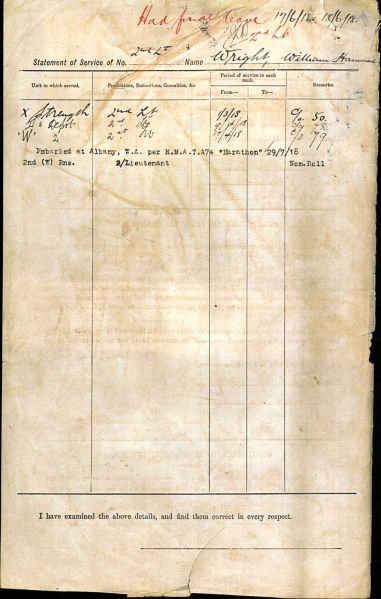 Had final leave 17/6/18 18/6/18.
Statement of Service of No. 2nd Lt Name Wright William
Unit in which served. Promotions, Reductions, Casualties, &c. Period of service in each rank. Remarks.
From— To—
X Strength 2nd Lt 1/3/18 C/o 50.
Depot 2nd Lt
"W" 2 2nd Lt C/o 79
Embarked at Albany, W.A. per H.M.A.T.A74 "Marathon" 29/7/18
2nd (W) Rns. 2/Lieutenant Nom.Roll
I have examined the above details, and find them correct in every respect.